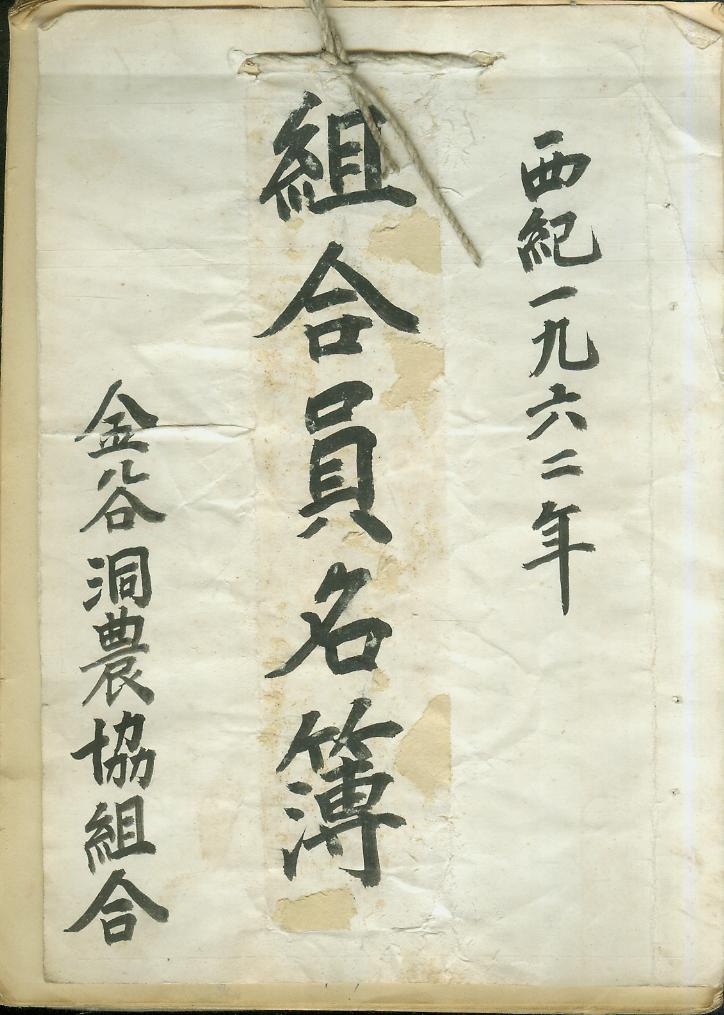 西紀一九六二年
組合員名簿
金谷洞農協組合